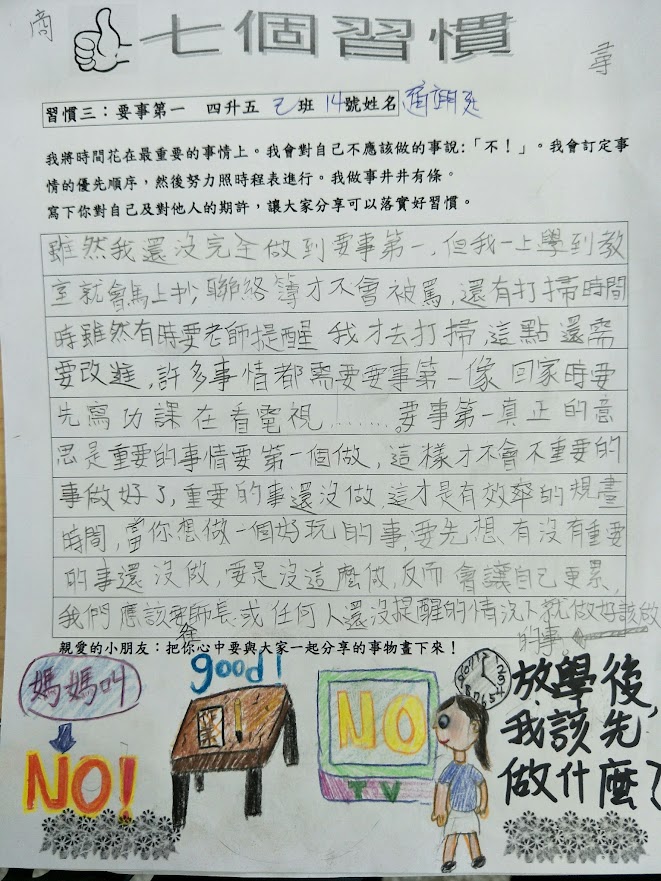 商
七個習慣
尋
習慣三：要事第一 四升五 己班 14號姓名
我將時間花在最重要的事情上。我會對自己不應該做的事說:「不！」。我會訂定事
情的優先順序，然後努力照時程表進行。我做事井井有條。
寫下你對自己及對他人的期許，讓大家分享可以落實好習慣。
雖然我還沒完全做到要事第一,但我一上學到教
室就會馬上抄聯絡簿才不會被罵,還有打掃時間
時雖然有時要老師提醒 我才去打掃,這點還需
要改進,許多事情都需要要事第一像 回家時要
先寫功課在看電視.......要事第一真正的意
思是重要的事情要第一個做,這樣才不會不重要的
事做好了,重要的事還沒做,這才是有效率的規畫
時間,當你想做一個好玩的事,要先想有沒有重要
的事還沒做,要是沒這麼做,反而會讓自己更累,
我們應該要在師長或任何人還沒提醒的情況下就做好該做
的事。
親愛的小朋友：把你心中要與大家一起分享的事物畫下來！
媽媽叫
NO!
good!
NO
TV
放學後,
我該先
做什麼?